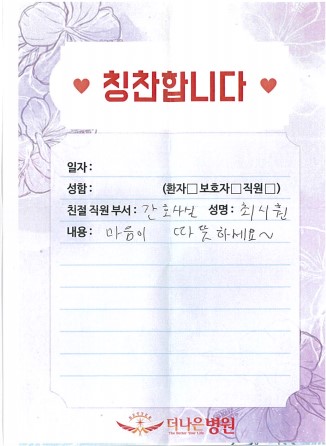 칭찬합니다
일자 :
성함 : (환자□ 보호자□ 직원□)
친절 직원 부서 : 간호사님 성명 : 최시원
내용 : 마음이 따뜻하세요~
더나은병원